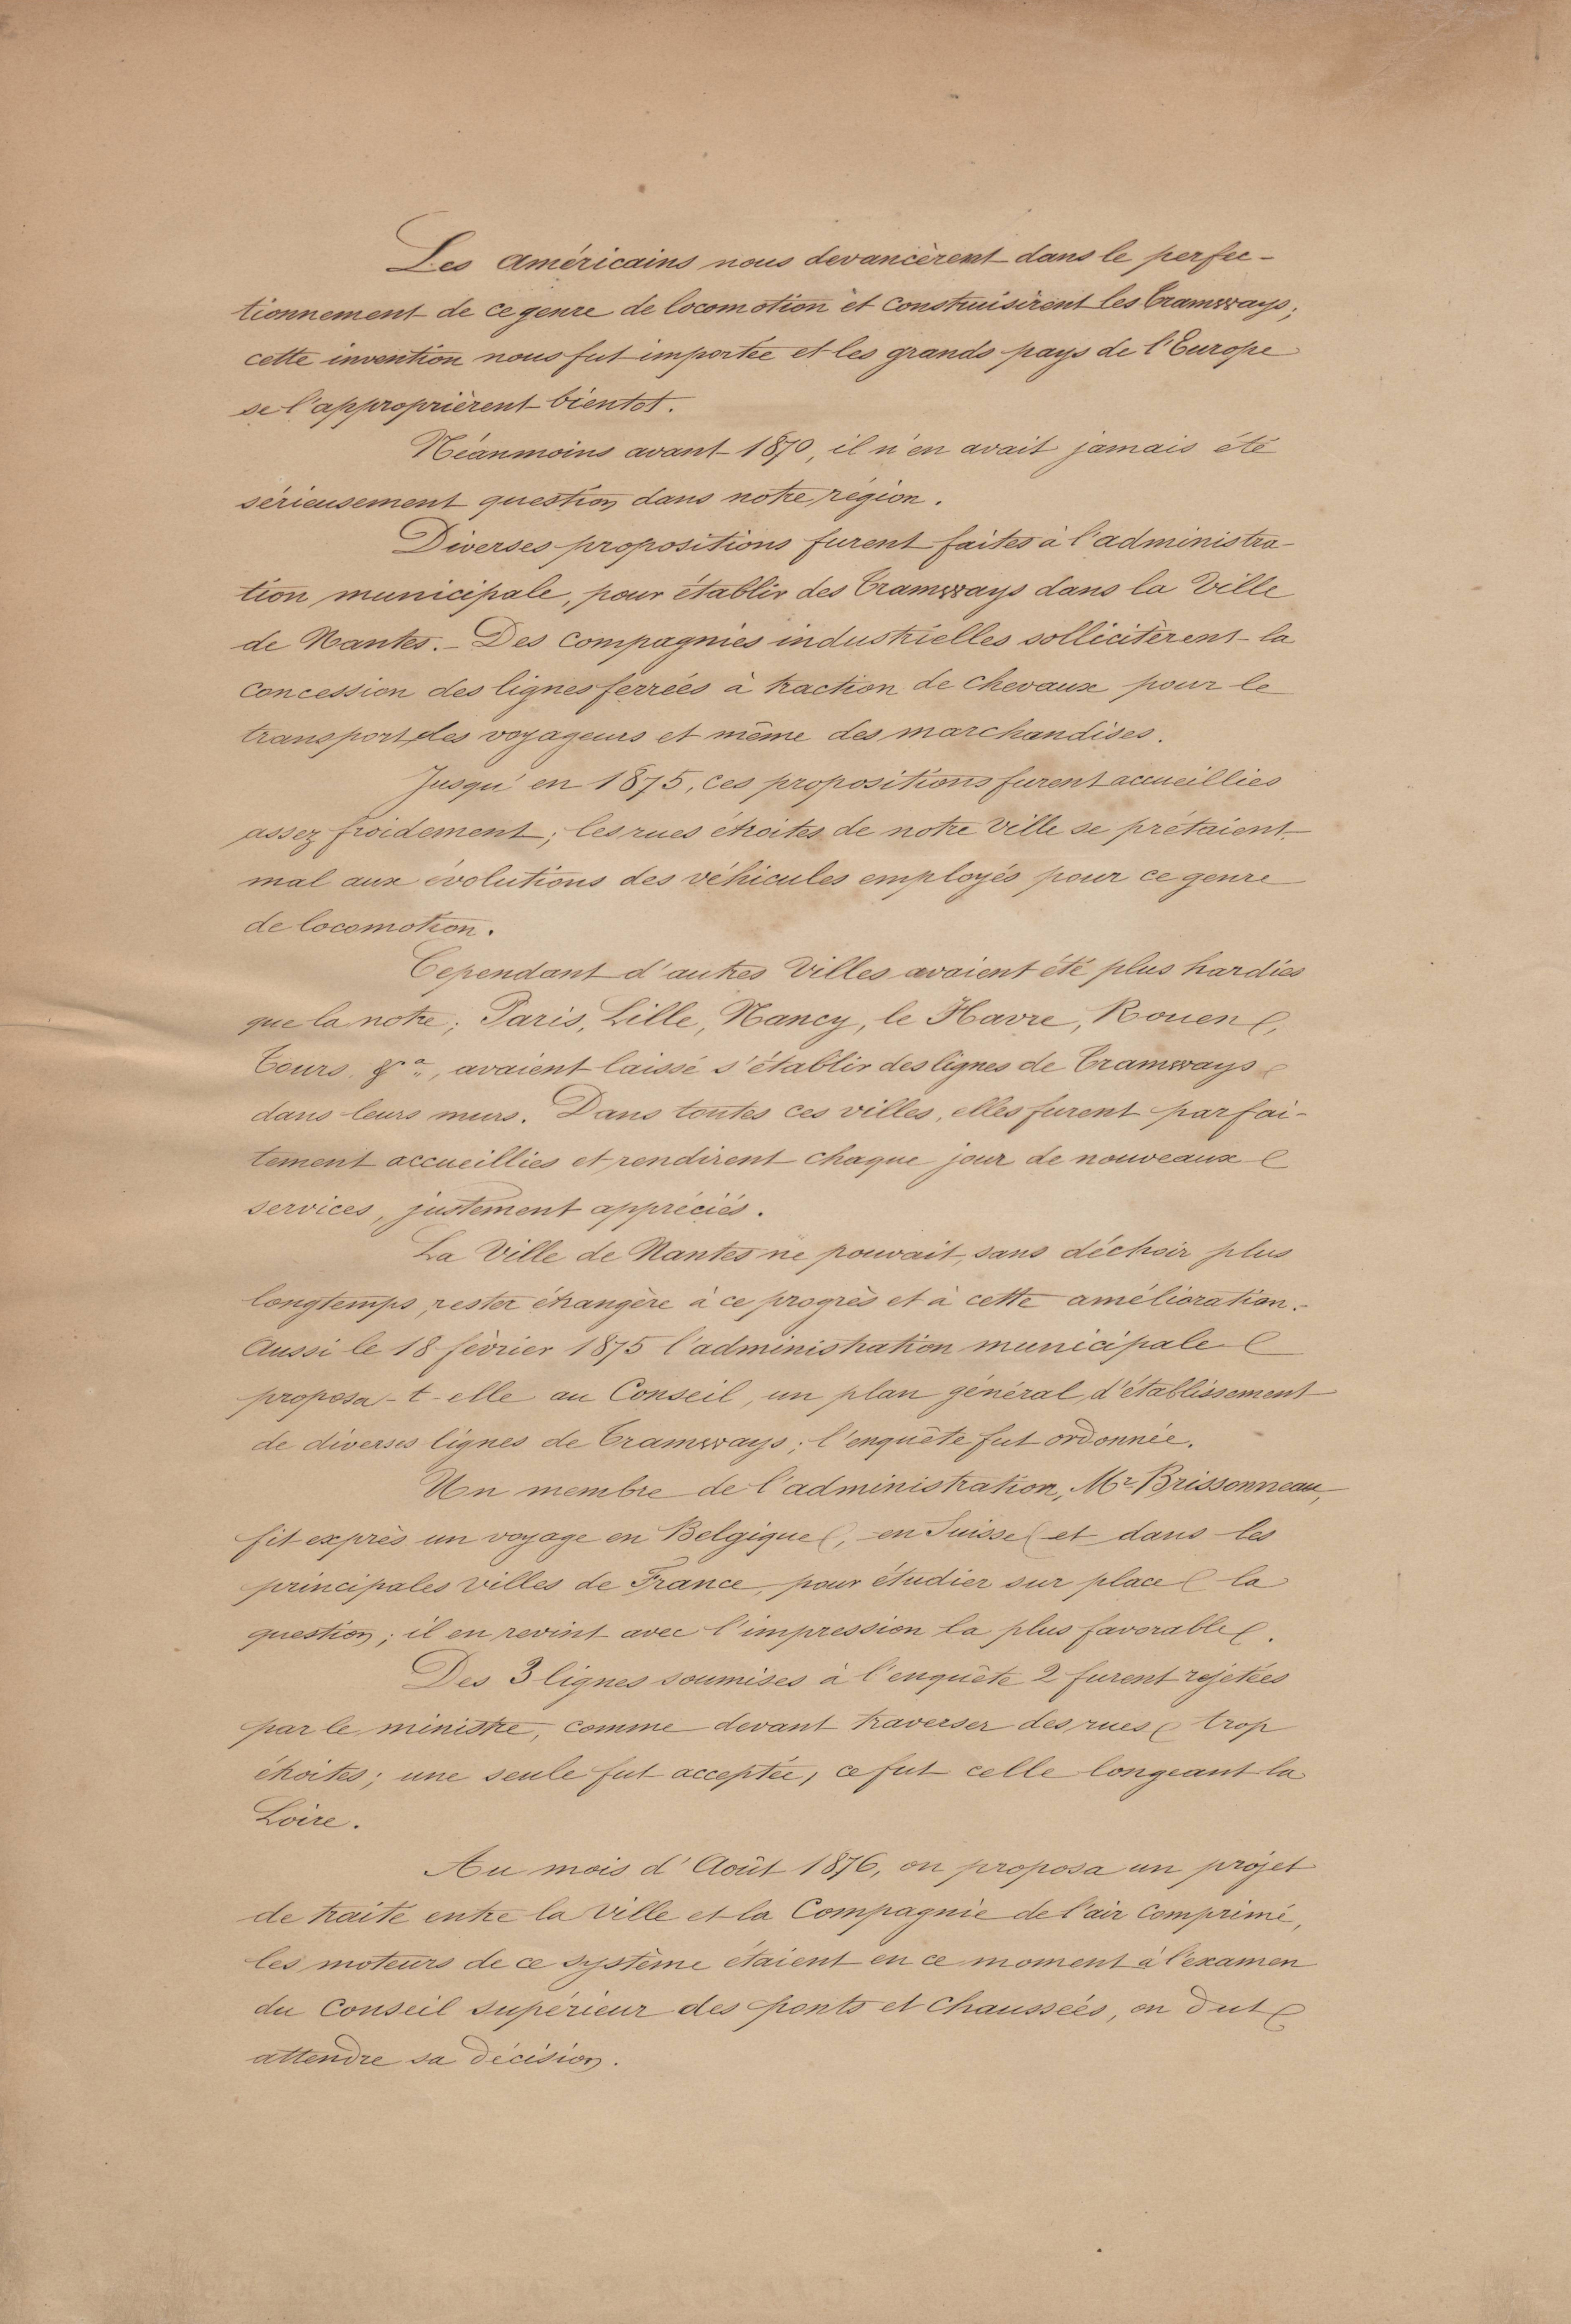 Les américains nous devancèrent dans le perfec-
tionnement de ce genre de locomotion et construisirent les Tramways;
cette invention nous fut importée et les grands pays de l'Europe
se l'approprièrent bientot.
Néanmoins avant 1870, il n'en avait jamais été
sérieusement question dans notre région.
Diverses propositions furent faites à l'administra-
tion municipale, pour établir des Tramways dans la Ville
de Nantes. - Des compagnies industrielles sollicitèrent la
concession des lignes ferrées à traction de chevaux pour le
transport des voyageurs et même des marchandises.
Jusqu'en 1875, ces propositions furent accueillies
assez froidement; les rues étroites de notre Ville se prétaient
mal aux évolutions des véhicules employés pour ce genre
de locomotion.
Cependant d'autres Villes avaient été plus hardies
que la notre; Paris, Lille, Nancy, le Havre, Rouen,
Tours, &a, avaient laissé s'établir des lignes de Tramways
dans leurs murs. Dans toutes ces villes, elles furent parfai-
tement accueillies et rendirent chaque jour de nouveaux
services, justement appréciés.
La Ville de Nantes ne pouvait, sans déchoir plus
longtemps, rester étrangère à ce progrès et à cette amélioration.-
Aussi le 18 février 1875 l'administration municipale
proposa-t-elle au Conseil, un plan général d'établissement
de diverses lignes de Tramways; l'enquête fut ordonnée.
Un membre de l'administration, Mr Brissonneau,
fit exprès un voyage en Belgique, en Suisse et dans les
principales villes de France, pour étudier sur place la
question; il en revint avec l'impression la plus favorable.
Des 3 lignes soumises à l'enquête 2 furent rejetées
par le ministre, comme devant traverser des rues trop
étroites; une seule fut acceptée, ce fut celle longeant la
Loire.
Au mois d'Août 1876, on proposa un projet
de traité entre la Ville et la Compagnie de l'air comprimé,
les moteurs de ce système étaient en ce moment à l'examen
du Conseil supérieur des ponts et chaussées, on dut
attendre sa décision.